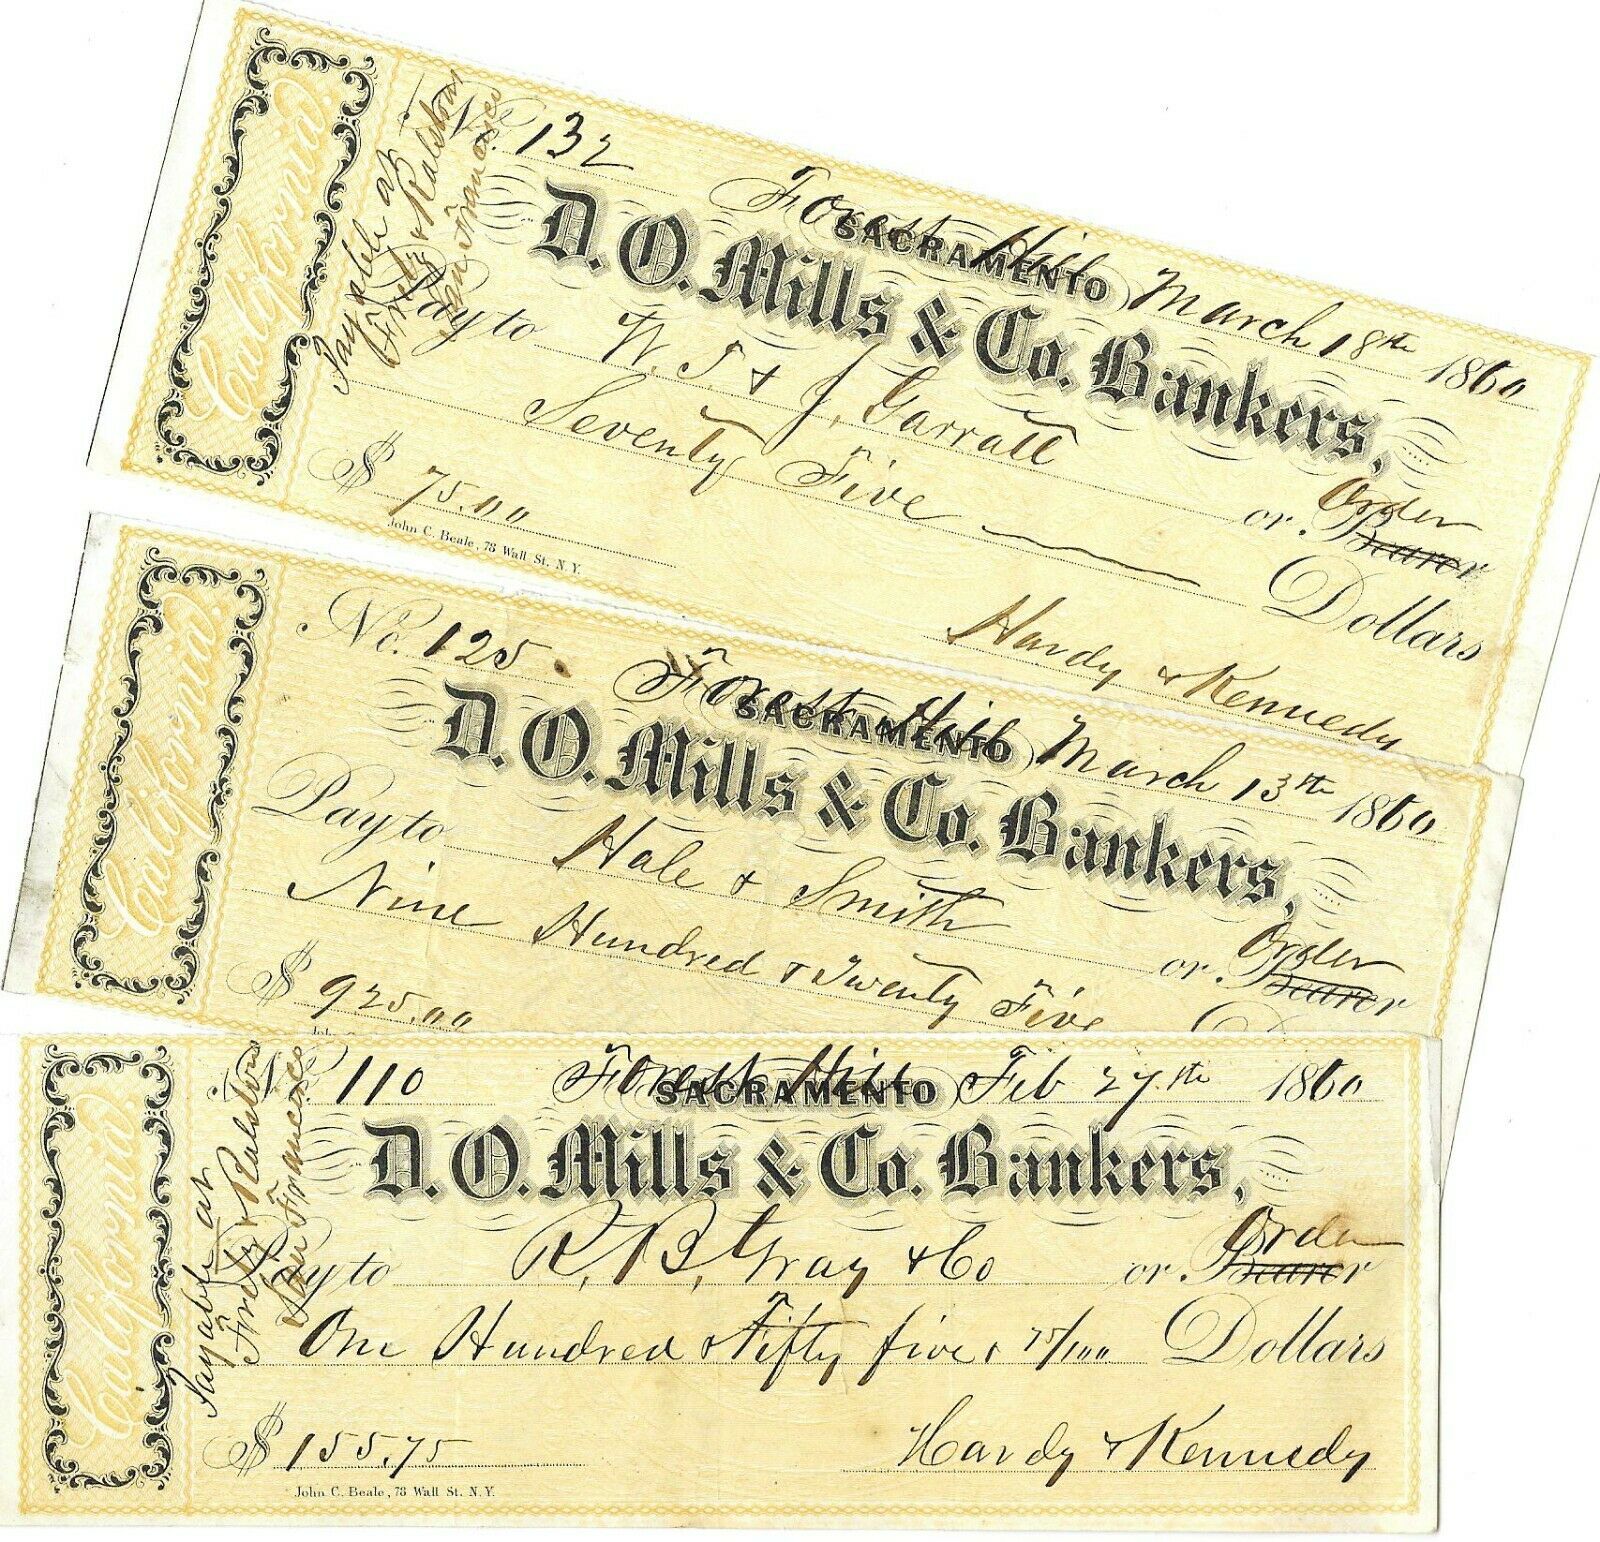 California
Payable at
Fretz & Ralston
San Francisco
No. 132
Forest Hill March 18th 1860
SACRAMENTO
D. O. Mills & Co. Bankers,
Pay to W. T. & J. Garratt
or Order
Bearer
Seventy Five Dollars
$ 75.00
Hardy & Kennedy
John C. Beale, 78 Wall St. N.Y.
California
No. 125.
Forest Hill March 13th 1860
SACRAMENTO
D. O. Mills & Co. Bankers,
Pay to Hale & Smith
or Order
Bearer
Nine Hundred & Twenty Five
$ 925.00
California
Payable at
Fretz & Ralston
San Francisco
No. 110 Forest Hill Feb 27th 1860
SACRAMENTO
D. O. Mills & Co. Bankers,
Order
Pay to R. B. Gray & Co or Bearer
One Hundred & Fifty five & 75/100 Dollars
$ 155.75
Hardy & Kennedy
John C. Beale, 78 Wall St. N.Y.